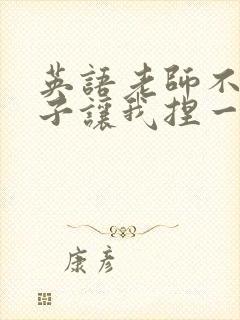 英語老師不
子讓我捏一
康彥